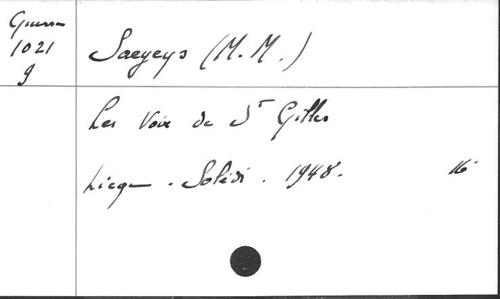 Guerre
1021
g
Saeyeys (M. M.)
Les Voix de St Gilles
Liège - Solédi. 1948.
16